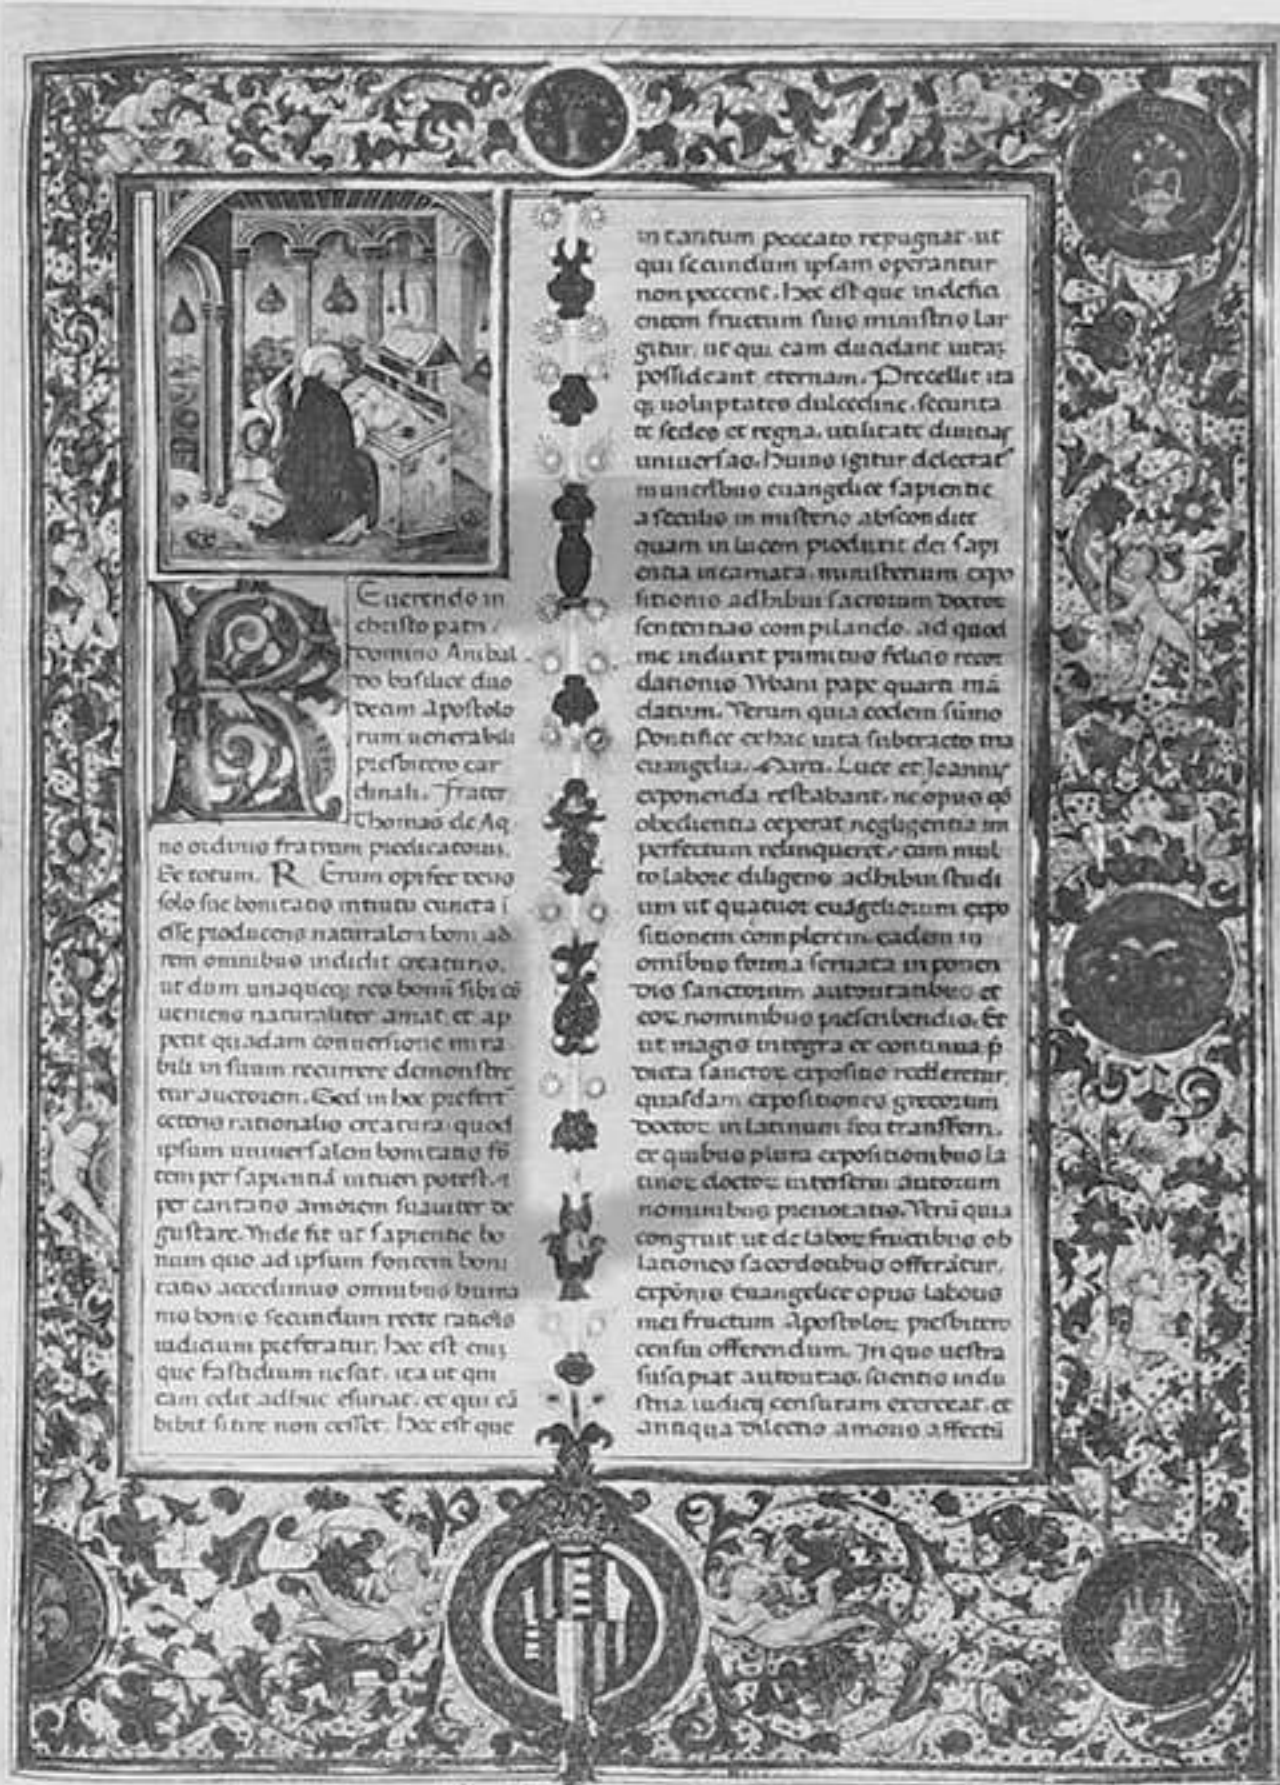 REuerendo in
christo patri,
domino Anibal
do basilice duo
decim Apostolo
rum uenerabili
presbitero car
dinali. Frater
Thomas de Aq
no ordinis fratrum predicatorum.
Se totum. RErum opifex deus
solo sue bonitatis intuitu cuncta i
esse producens naturalem boni ad
rem omnibus indidit creaturis.
ut dum unaqueq; res bonū sibi cō
ueniens naturaliter amat et ap
petit quadam conuersione mira
bili in suum recurrere demonstre
tur auctorem. Sed in hoc prefert
ceteris rationalis creatura quod
ipsum uniuersalem bonitatis fō
tem per sapientiā intueri potest. ⁊
per caritatis amorem suauiter de
gustare. Vnde fit ut sapientie bo
num quo ad ipsum fontem boni
tatis accedimus omnibus huma
nis bonis secundum recte rationis
iudicium preferatur. hec est enī
que fastidium nescit. ita ut qui
eam edit adhuc esuriat. et qui eā
bibit sitire non cesset. hec est que
in tantum peccato repugnat. ut
qui secundum ipsam operantur
non peccent. hec est que indefici
entem fructum suis ministris lar
gitur. ut qui eam elucidant uitā
possideant eternam. Precellit ita
q; uoluptates dulcedine. securita
te sedes et regna. utilitate diuitias
uniuersas. Huius igitur delectat
muneribus euangelice sapientie
a seculis in misterio abscondite
quam in lucem produxit dei sapi
entia incarnata. ministerium expo
sitionis adhibui sacrorum doctor
sententias compilando. ad quod
me induxit primitus felicis recor
dationis Vrbani pape quarti mā
datum. Verum quia eodem sūmo
Pontifice ex hac uita subtracto tria
euangelia. Marci. Luce et Joannis
exponenda restabant. ne opus qđ
obedientia ceperat negligentia im
perfectum relinqueret. cum mul
to labore diligens adhibui studi
um ut quatuor euāgeliorum expo
sitionem complerem. eadem in
omībus forma seruata in ponen
dis sanctorum autoritatibus et
eoꝝ nominibus prescribendis. Et
ut magis integra et continua p̄
dicta sanctoꝝ expositio redderetur.
quasdam expositiones grecorum
doctoꝝ in latinum feci transferri.
ex quibus plura expositionibus la
tinoꝝ doctoꝝ interserui autorum
nominibus prenotatis. Verū quia
congruit ut de laboꝝ fructibus ob
lationes sacerdotibus offerātur.
expōnis Euangelice opus laboris
mei fructum Apostoloꝝ presbitero
censui offerendum. In quo uestra
suscipiat autoritas. scientis indu
stria iudicij censuram exerceat. et
antiqua dilectio amoris affectū